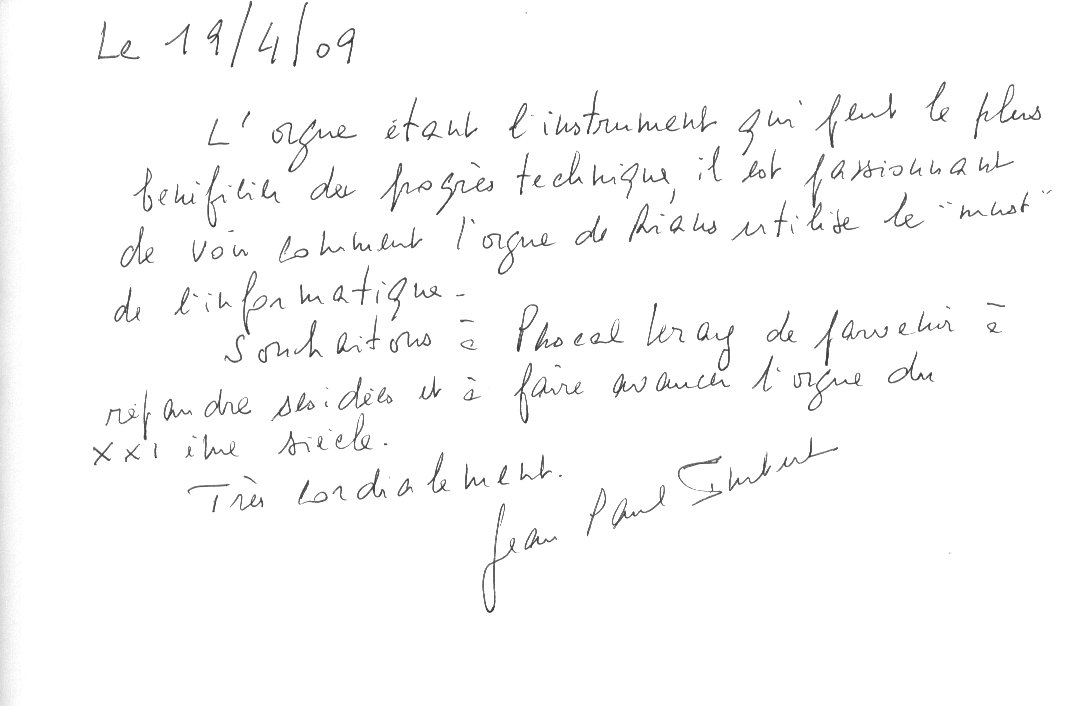 Le 19/4/09
L'orgue étant l'instrument qui peut le plus
bénificier du progrès technique, il est passionnant
de voir comment l'orgue de Rians utilise le "must"
de l'informatique.
Souhaitons à Pascal Leray de parvenir à
répandre ses idées et à faire avancer l'orgue du
XXI ème siècle.
Très cordialement.
Jean Paul Imbert